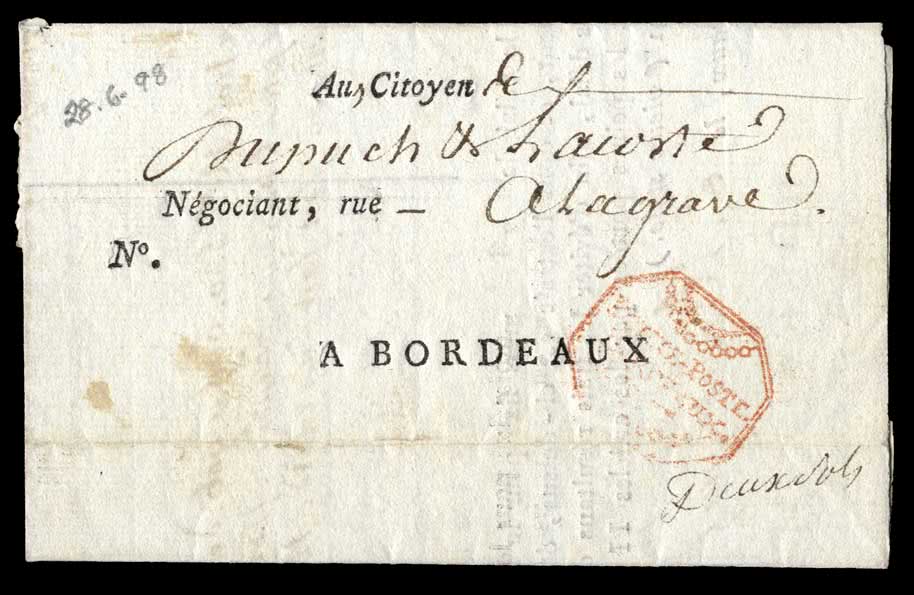 28.6.98
Aux Citoyen
Dupuch & Lacoste
Négociant, rue — A Lagrave.
N°.
A BORDEAUX
POSTE.
Deux Sols